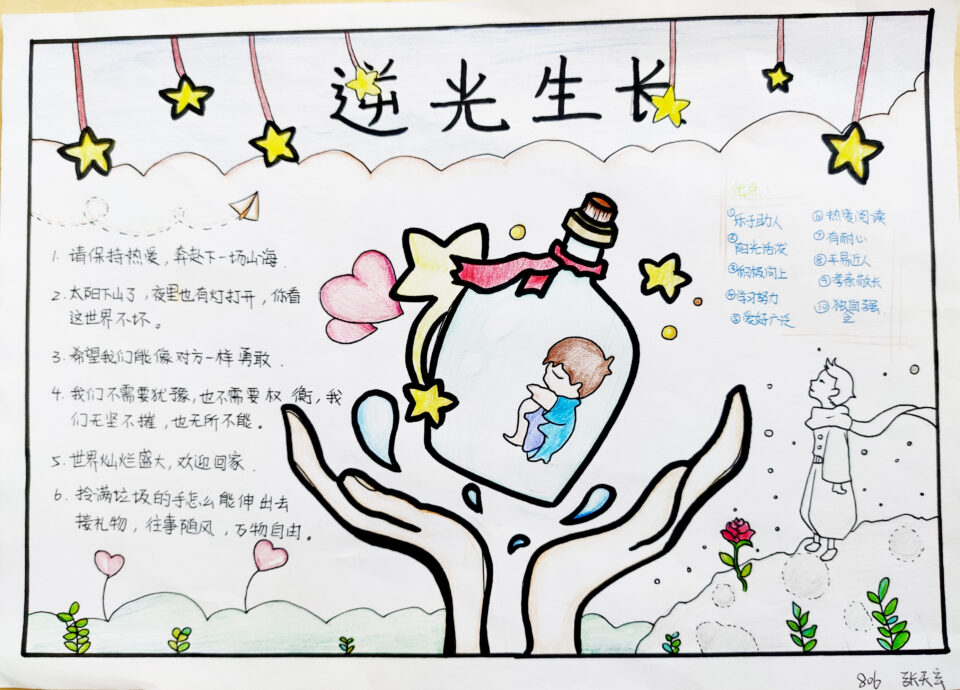 逆光生长
1. 请保持热爱，奔赴下一场山海.
2. 太阳下山了，夜里也有灯打开，你看
这世界不坏。
3. 希望我们能像对方一样勇敢.
4. 我们不需要犹豫，也不需要权衡，我
们无坚不摧，也无所不能。
5. 世界灿烂盛大，欢迎回家.
6. 拎满垃圾的手怎么能伸出去
接礼物，往事随风，万物自由。
优点：
①乐于助人
②阳光活泼
③积极向上
④学习努力
⑤爱好广泛
⑥热爱阅读
⑦有耐心
⑧平易近人
⑨孝亲敬长
⑩独自强
立
806 张天